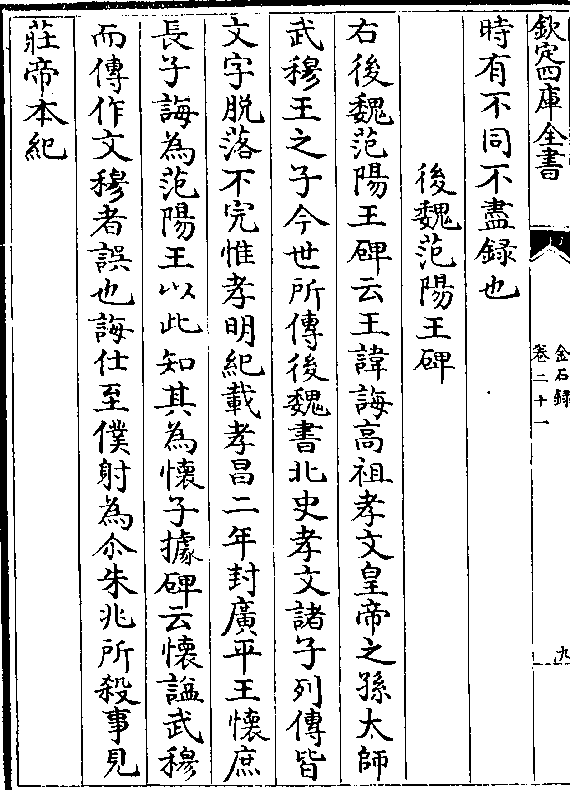 欽定四庫全書
金石錄
卷二十一
九
時有不同不盡録也
後魏范陽王碑
右後魏范陽王碑云王諱誨高祖孝文皇帝之孫太師
武穆王之子今世所傳後魏書北史孝文諸子列傳皆
文字脱落不完惟孝明紀載孝昌二年封廣平王懷庶
長子誨為范陽王以此知其為懷子據碑云懷諡武穆
而傳作文穆者誤也誨仕至僕射為尒朱兆所殺事見
莊帝本紀